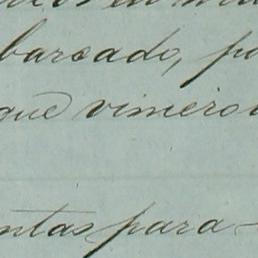 barcado, po
que vimero
ntas para